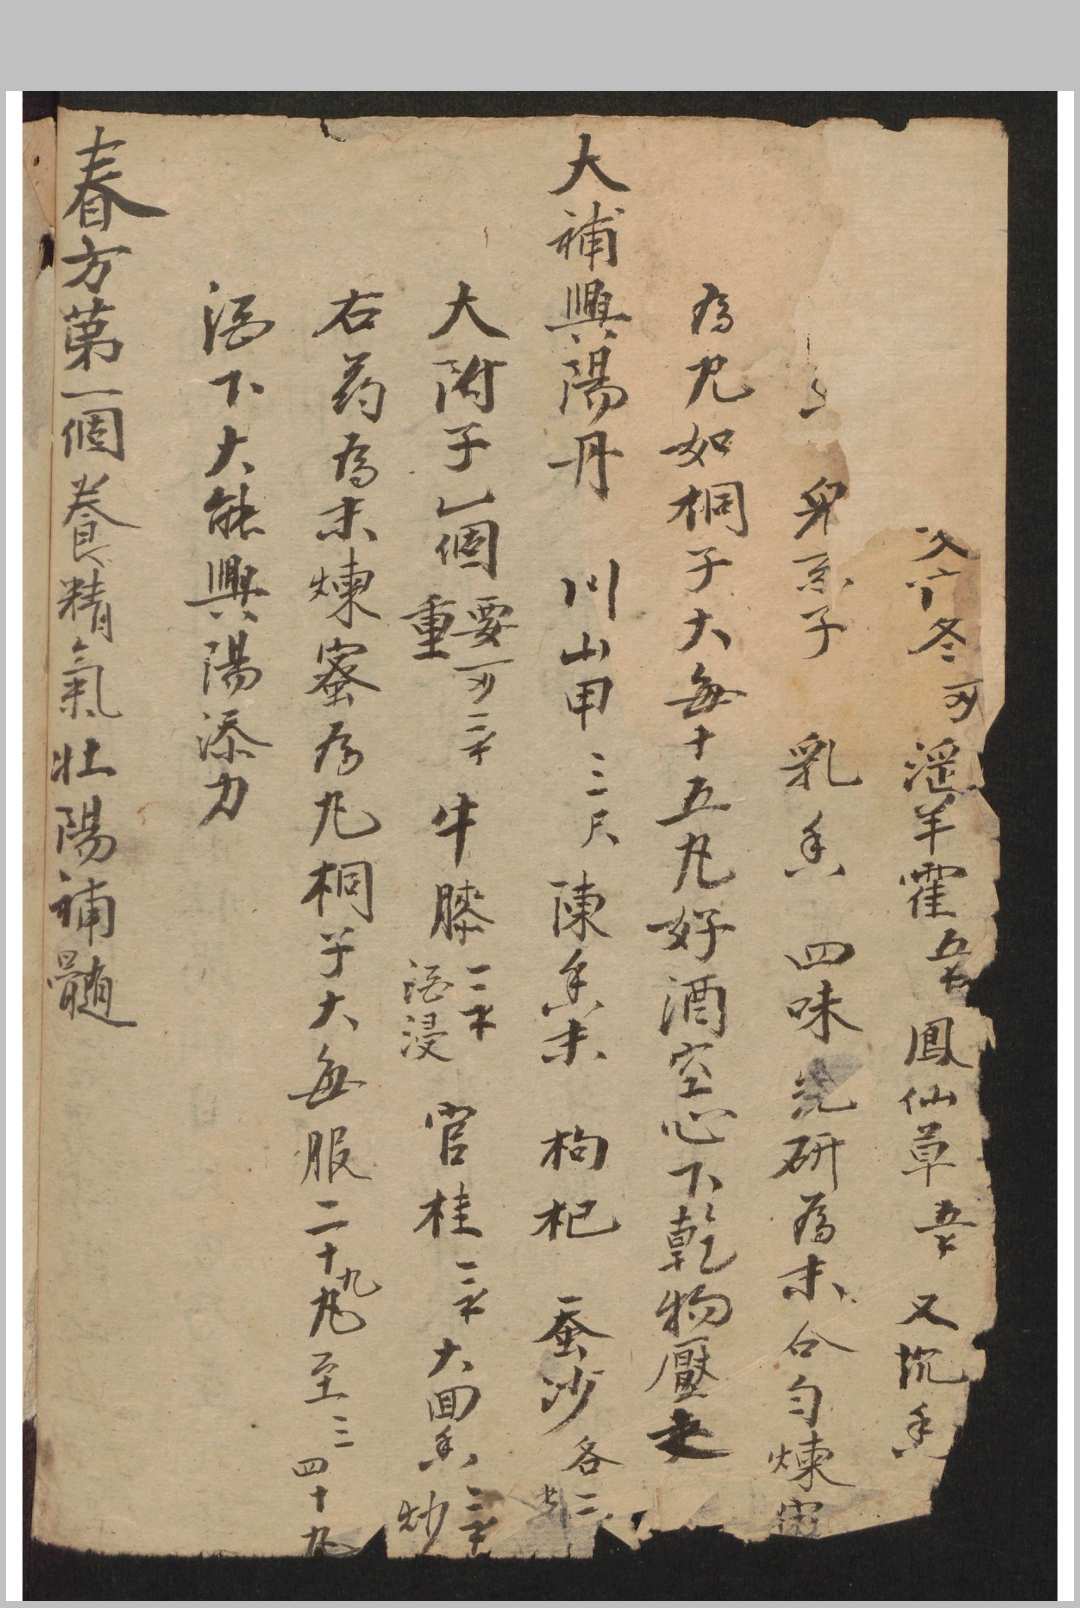 冬 淫羊霍 鳳仙草 又沉香
乳香 四味 研為末合勻煉
為丸如桐子大每十五丸好酒空心下乾物壓之
大補興陽丹 川山甲三 陳香末 枸杞 蚕沙各二
大附子乙個重要 牛膝酒浸 官桂 大茴香炒
右药為末煉蜜為丸桐子大每服二十九丸至三四十丸
酒下大能興陽添力
春方第一個養精氣壯陽補髓